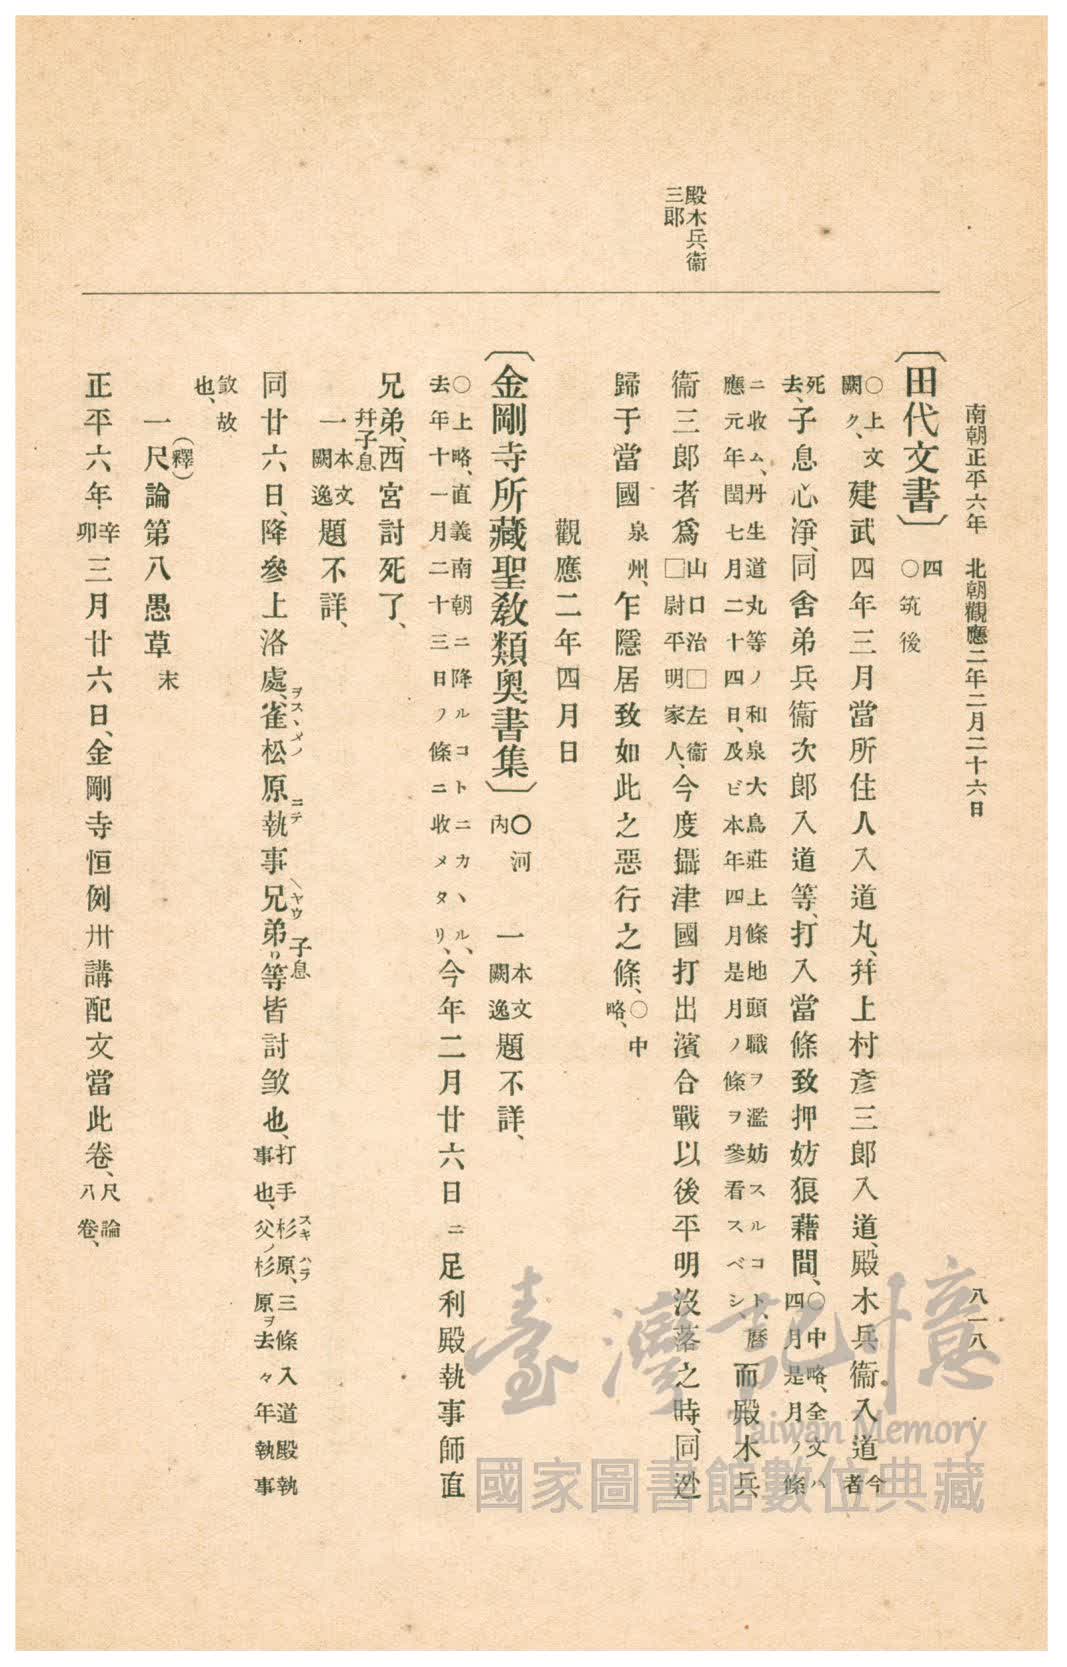 南朝正平六年 北朝觀應二年二月二十六日
八一八
殿木兵衞
三郎
〔田代文書〕 四 ○筑後
○上文闕ク、建武四年三月當所住人入道丸、幷上村彥三郎入道、殿木兵衞入道 今者
死去、子息心淨、同舍弟兵衞次郎入道等、打入當條致押妨狼藉間、○中略、全文ハ四月是月ノ條
ニ收ム、丹生道丸等ノ和泉大鳥莊上條地頭職ヲ濫妨スルコト、曆應元年閏七月二十四日、及ビ本年四月是月ノ條ヲ參看スベシ、而殿木兵
衞三郎者爲 山口治□左衞□尉平明家人、今度攝津國打出濱合戰以後平明沒落之時、同迯
歸于當國 泉州、乍隱居致如此之惡行之條、○中略、
觀應二年四月日
〔金剛寺所藏聖敎類奧書集〕 ○河內 一 本文闕逸 題不詳、
○上略、直義南朝ニ降ルコトニカヽル、去年十一月二十三日ノ條ニ收メタリ、今年二月廿六日ニ足利殿執事師直
兄弟、幷子息西宮討死了、
一 本文闕逸 題不詳、
同廿六日、降參上洛處、雀松原執事兄弟リ等皆討㪇也、打手杉原、三條入道殿執事也、父ノ杉原ヲ去々年執事
ヲスヽメノ ニテ ヤウ 子息 スキハラ
㪇故也、
一尺論第八愚草 末
(釋)
正平六年 辛卯 三月廿六日、金剛寺恒例卅講配文當此卷、尺論八卷、
臺灣記憶
Taiwan Memory
國家圖書館數位典藏